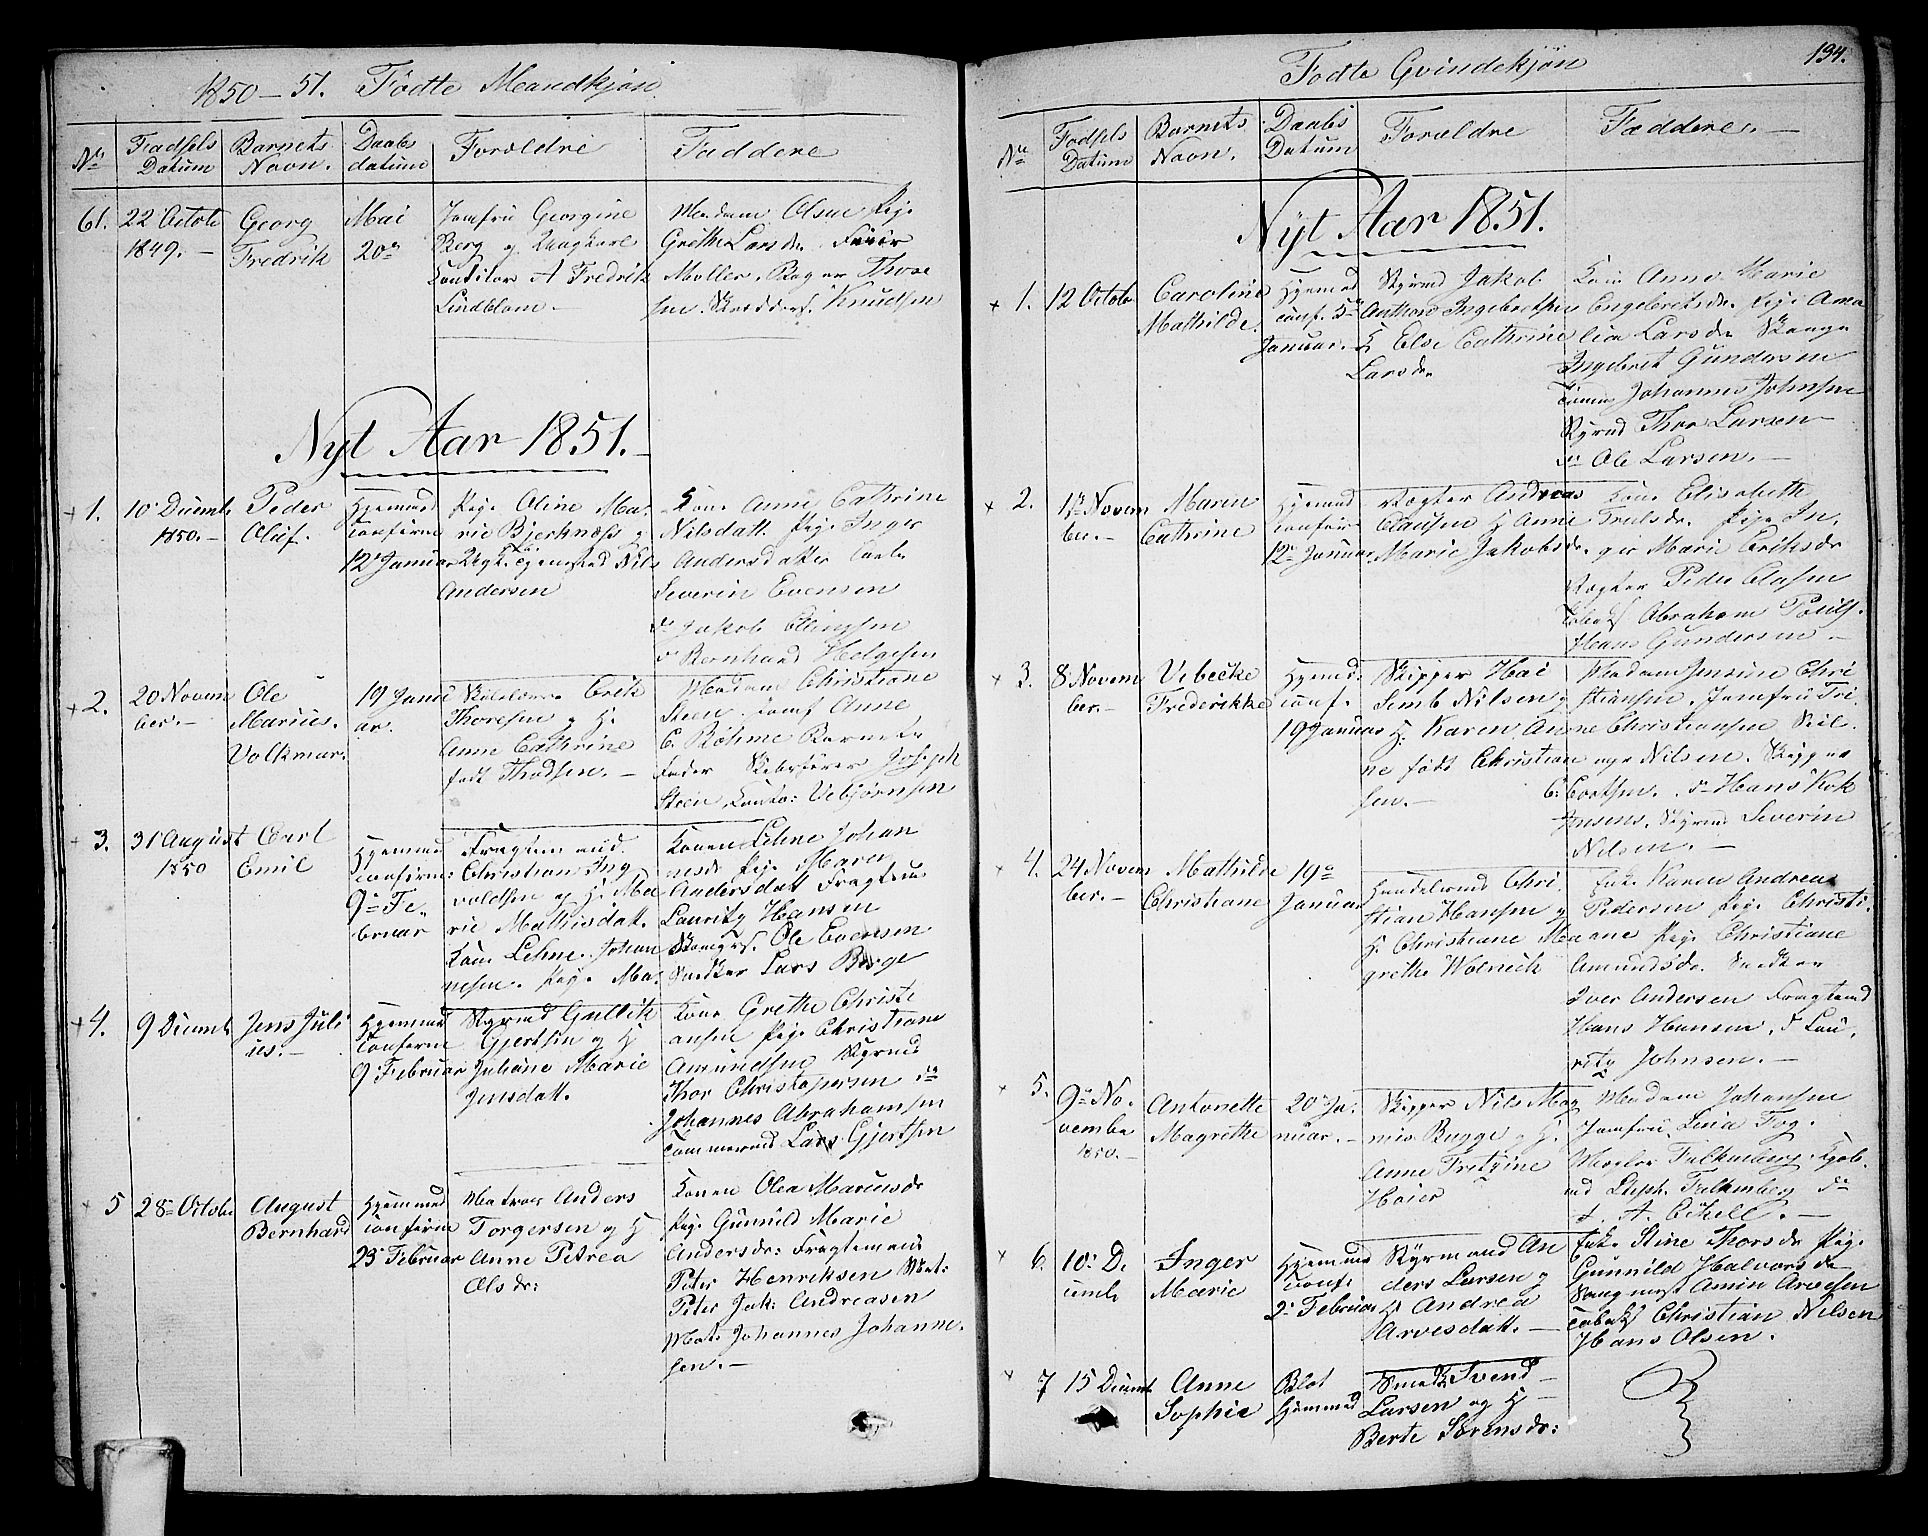 1850-51. Fødte Mandkjøn.
No
Fødsels
Datum
Barnets
Navn.
Daabs
datum
Forældre
Faddere
61.
22 Octobr
1849.-
Georg
Fredrik
Mai
20de
Jomfru Georgine
Berg og
A Fredrik
Lindblom.-
Madam Olsen Pige
Grethe Larsdr.
Møller. Thore
sen. Knudsen
Nyt Aar 1851.-
+ 1.
10 Decembr
1850.-
Peder
Oluf.
Hjemmed
confirme
12 Januar
Pige Oline Ma-
rie Bjerknæss og
Nils
Andersen
Kone Anne Cathrine
Nilsdatt. Pige Inger
Andersdatter
Severin Evensen
do Jakob Ellingsen
do Bernhard Helgesen
+ 2.
20 Novem
ber.-
Ole
Marius.
Volkmar.
19 Janu
ar.
Erik
Thoresen og H.
Anne Cathrine
født Thodsen.-
Madam Christiane
Steen. Jomf Anne
C. Bøhme Barnets
Fader Joseph
Steen, Vebjørnsen
3.
31 August
1850
Carl
Emil
Hjemmed
confirme:
9de Fe-
bruar
Fragtemand
Christian Ing
voldsen og H. Ma
rie Mathisdatt.
Kone Lehne Johan
nesen. Pige Ma.
Konen Lehne Johan
nesdr Pige Maren
Andersdatt Fragtem
Lauritz Hansen
Ole Evensen
Snedker Lars Berge
+ 4.
9 Decembr
Jens Juli
us.-
Hjemmed
confirme
9 Februar
Styrmd Gullik
Gjertsen og H
Juliane Marie
Jensdatt.
Kone Grethe Christi
ansen Pige Christiane
Amundsen Styrmd
Thor Christophersen do
Johannes Abrahamsen
Tømmermd Lars Gjertsen
5
28de Octobr
August
Bernhard
Hjemmed
confirme
23 Februar
Matros Anders
Torgersen og H
Anne Petrea
Olsdr:
Konen Olea Mariusdr
Pige Gunnild Marie
Andersdr: Fragtemand
Peter Henriksen Mat:
Peter Jak: Andreasen
Mat. Johannes Johanne.
sen.-
Fødte Qvindekjøn
194.
No
Fødsels
Datum
Barnets
Navn.
Daabs
Datum
Forældre
Faddere.-
Nyt Aar 1851.
+ 1.
12 Octobr
Caroline
Mathilde.
Hjemmed
conf. 5te
Januar.
Styrmd Jakob
Anthon Ingebretsen
H Else Cathrine
Larsdr
Kone Anne Marie
Engebretsdr. Pige Ama
lia Larsdr
Ingebret Gundersen
Johannes Johnsen
Styrmd Thor Larsen
do Ole Larsen.-
+ 2.
1te Novem
ber.-
Maren
Cathrine
Hjemmed
confir
12te Januar
Vægter Andreas
Clausen H Anne
Marie Jakobsdr.
Kone Elisabeth
Truls­dr. Pige In.
ger Marie Eriksdr
Vægter Peder Olasen
Abraham Pouls.
Hans Gundersen.-
+ 3.
8 Novem
ber.-
Vibecke
Frederikke
Hjemd.
conf.
19 Januar
Skipper Hai
Semb Nilsen og
H: Karen An
ne født Christian
sen.-
Madam Jensine Chri
stiansen. Jomfru Tri
ne Christiansen
Nilsen. Skipper
C. Cortsen. do Hans Kok
Jensens, Styrmd Severin
Nilsen.-
+ 4.
24 Novem
ber.-
Mathilde
Christiane
19de
Januar
Handelsmd Chri.
stian Hansen og
H. Christiane Ma
grethe Wolneck
Enke Karen Andrea
Pedersen Pige Christi.
ane Pige Christiane
Amundsdr. Snedker
Iver Andersen Fragtemd
Hans Hansen, do Lau.
ritz Johnsen.-
+ 5.
9de No.
vember
1850.-
Antonette
Magrethe
20 Ja.
nuar.-
Skipper Nils Mag
nus Bugge og H.
Anne Fritzine
Høier
Madam Johansen
Jomfru Lina Fog.
Mægler Falkenberg. Kjøb.
md Falkenberg do
A. Eckell.-
+ 6.
10de De
cembr
Inger
Marie
Hjemmed
conf.
2de Februar
Styrmand An
ders Larsen og
H Andrea
Arvesdatt.-
Enke Stine Thorsdr Pige
Gunnild Halvorsdr
Amin Arvesen
Christian Nilsen
Hans Olsen.
+ 7
15 Decembr
Anne
Sophie
Blot
hjemmed
Smed Svend
Larsen og H
Berte Sørensdr: